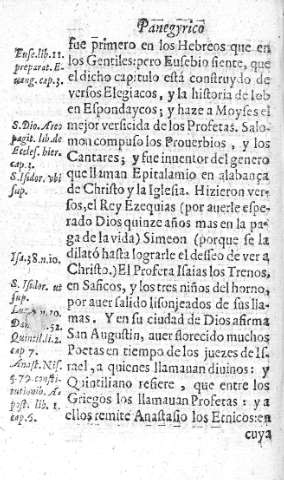 Panegyrico
fue primero en los Hebreos que en
los Gentiles: pero Eusebio siente, que
el dicho capitulo està construydo de
versos Elegiacos, y la historia de Iob
en Espondaycos; y haze a Moyses el
mejor versicida de los Profetas. Salo-
mon compuso los Prouerbios, y los
Cantares; y fue inuentor del genero
que llaman Epitalamio en alabança
de Christo y la Iglesia. Hizieron ver-
sos, el Rey Ezequias (por auerle espe-
rado Dios quinze años mas en la pa-
ga de la vida) Simeon (porque se la
dilatò hasta lograrle el desseo de ver a
Christo.) El Profeta Isaias los Trenos,
en Saficos, y los tres niños del horno,
por auer salido lisonjeados de sus lla-
mas. Y en su ciudad de Dios afirma
San Augustin, auer florecido muchos
Poetas en tiempo de los juezes de Is-
rael, a quienes llamauan diuinos: y
Quintiliano refiere, que entre los
Griegos los llamauan Profetas: y a
ellos remite Anastasio los Etnicos: en
cuya
Euse. lib. 11.
preparat. E-
uang. cap. 3.
S. Dio. Areo
pagit. lib. de
Eccles. hier.
cap. 3.
S. Isidor. vbi
sup.
Isa. 38. n. 10.
S. Isidor. vt
sup.
n. 10.
Dan. 52.
Quintil. li. 2.
cap 7.
Anast. Nis.
q. 79. consti-
tutionib. A-
post. lib. 1.
cap. 6.